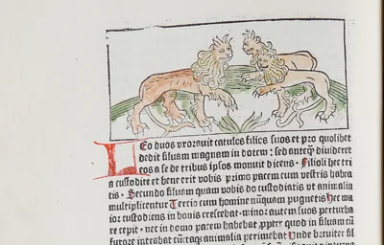 LEo duos ꝓcreauit catulos filios suos et pro quolibet
dedit siluam magnam in dotem : sed anteq̄ȝ diuideret
eos a se de tribus ipsos monuit dicens. Filioli hec tri
a custodite et bene erit vobis primo pacem cum vestris habea
tis. Secundo siluam quam vobis do custodiatis vt animalia
multiplicentur Tertio cum homine nūquam pugnetis Hec ma
ior custodiens in bonis crescebat. minor autem suos perturba
re cepit. nec in domo pacem habebat ꝓpter quod in siluam cū
furore intrabat animalia perimebat Unde breuiter sil